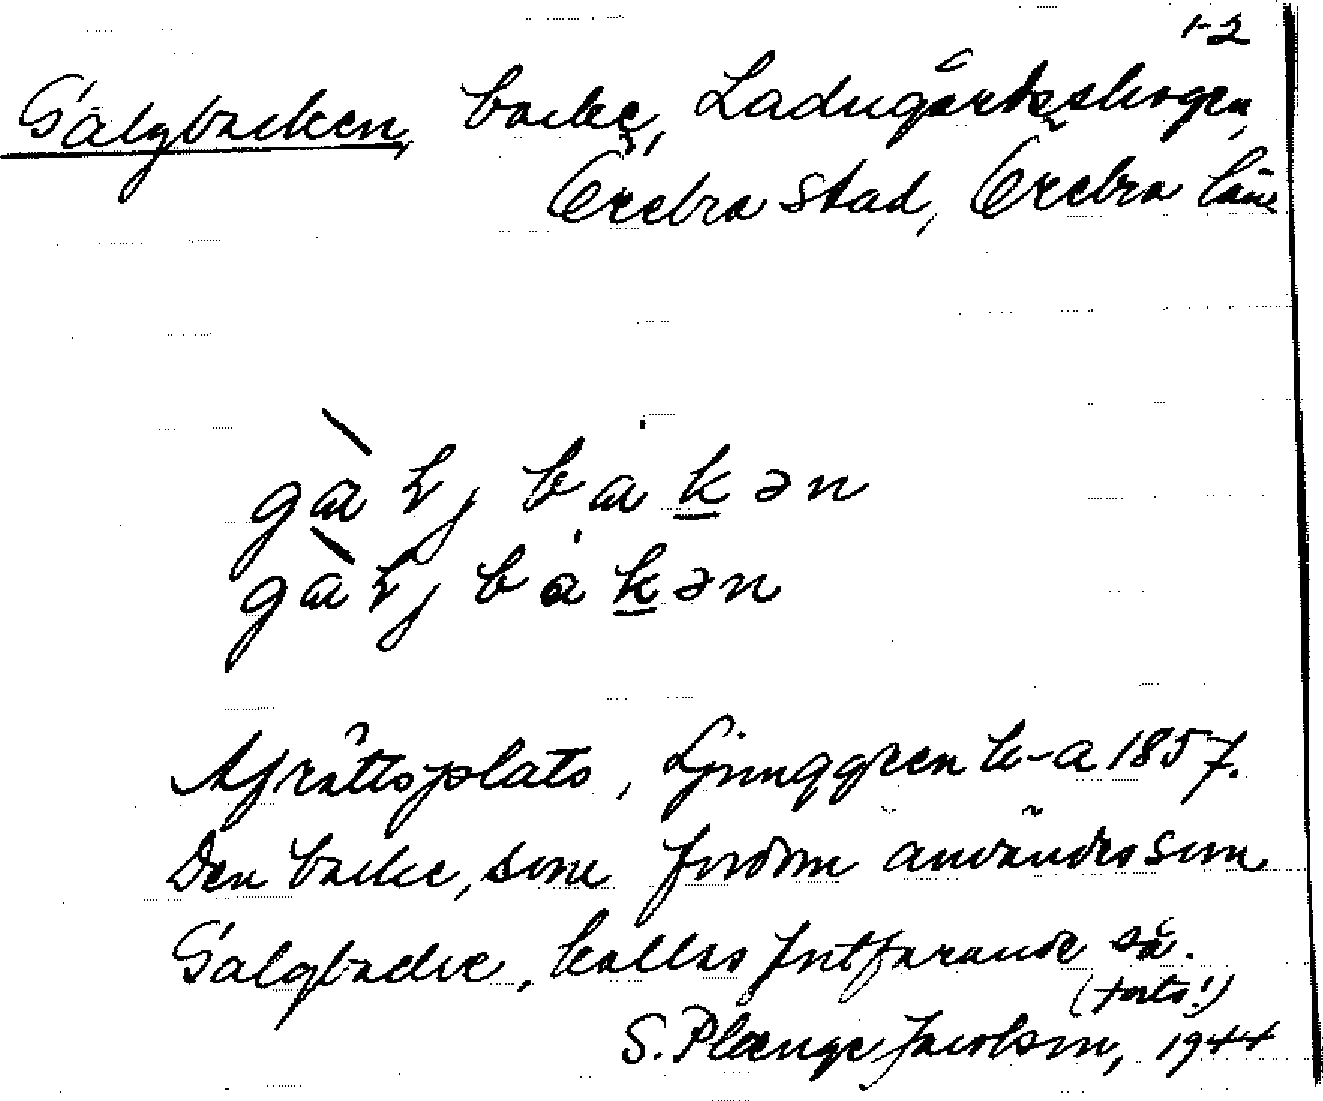 1-2
Galgbacken, backe, Ladugårdsskogen,
Örebro stad, Örebro län
gàɫjbakən
gàɫjbakən
Afrättsplats, Ljunggren k-a 1857.
Den backe, som fordom användes som
Galgbacke, kallas fortfarande så.
(forts!)
S. Plænge Jacobson, 1944